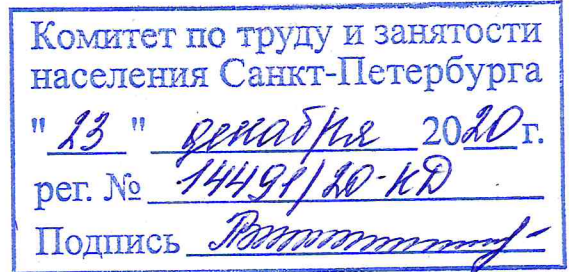 Комитет по труду и занятости
населения Санкт-Петербурга
"23" декабря 2020г.
рег. № 14491/20-КД
Подпись